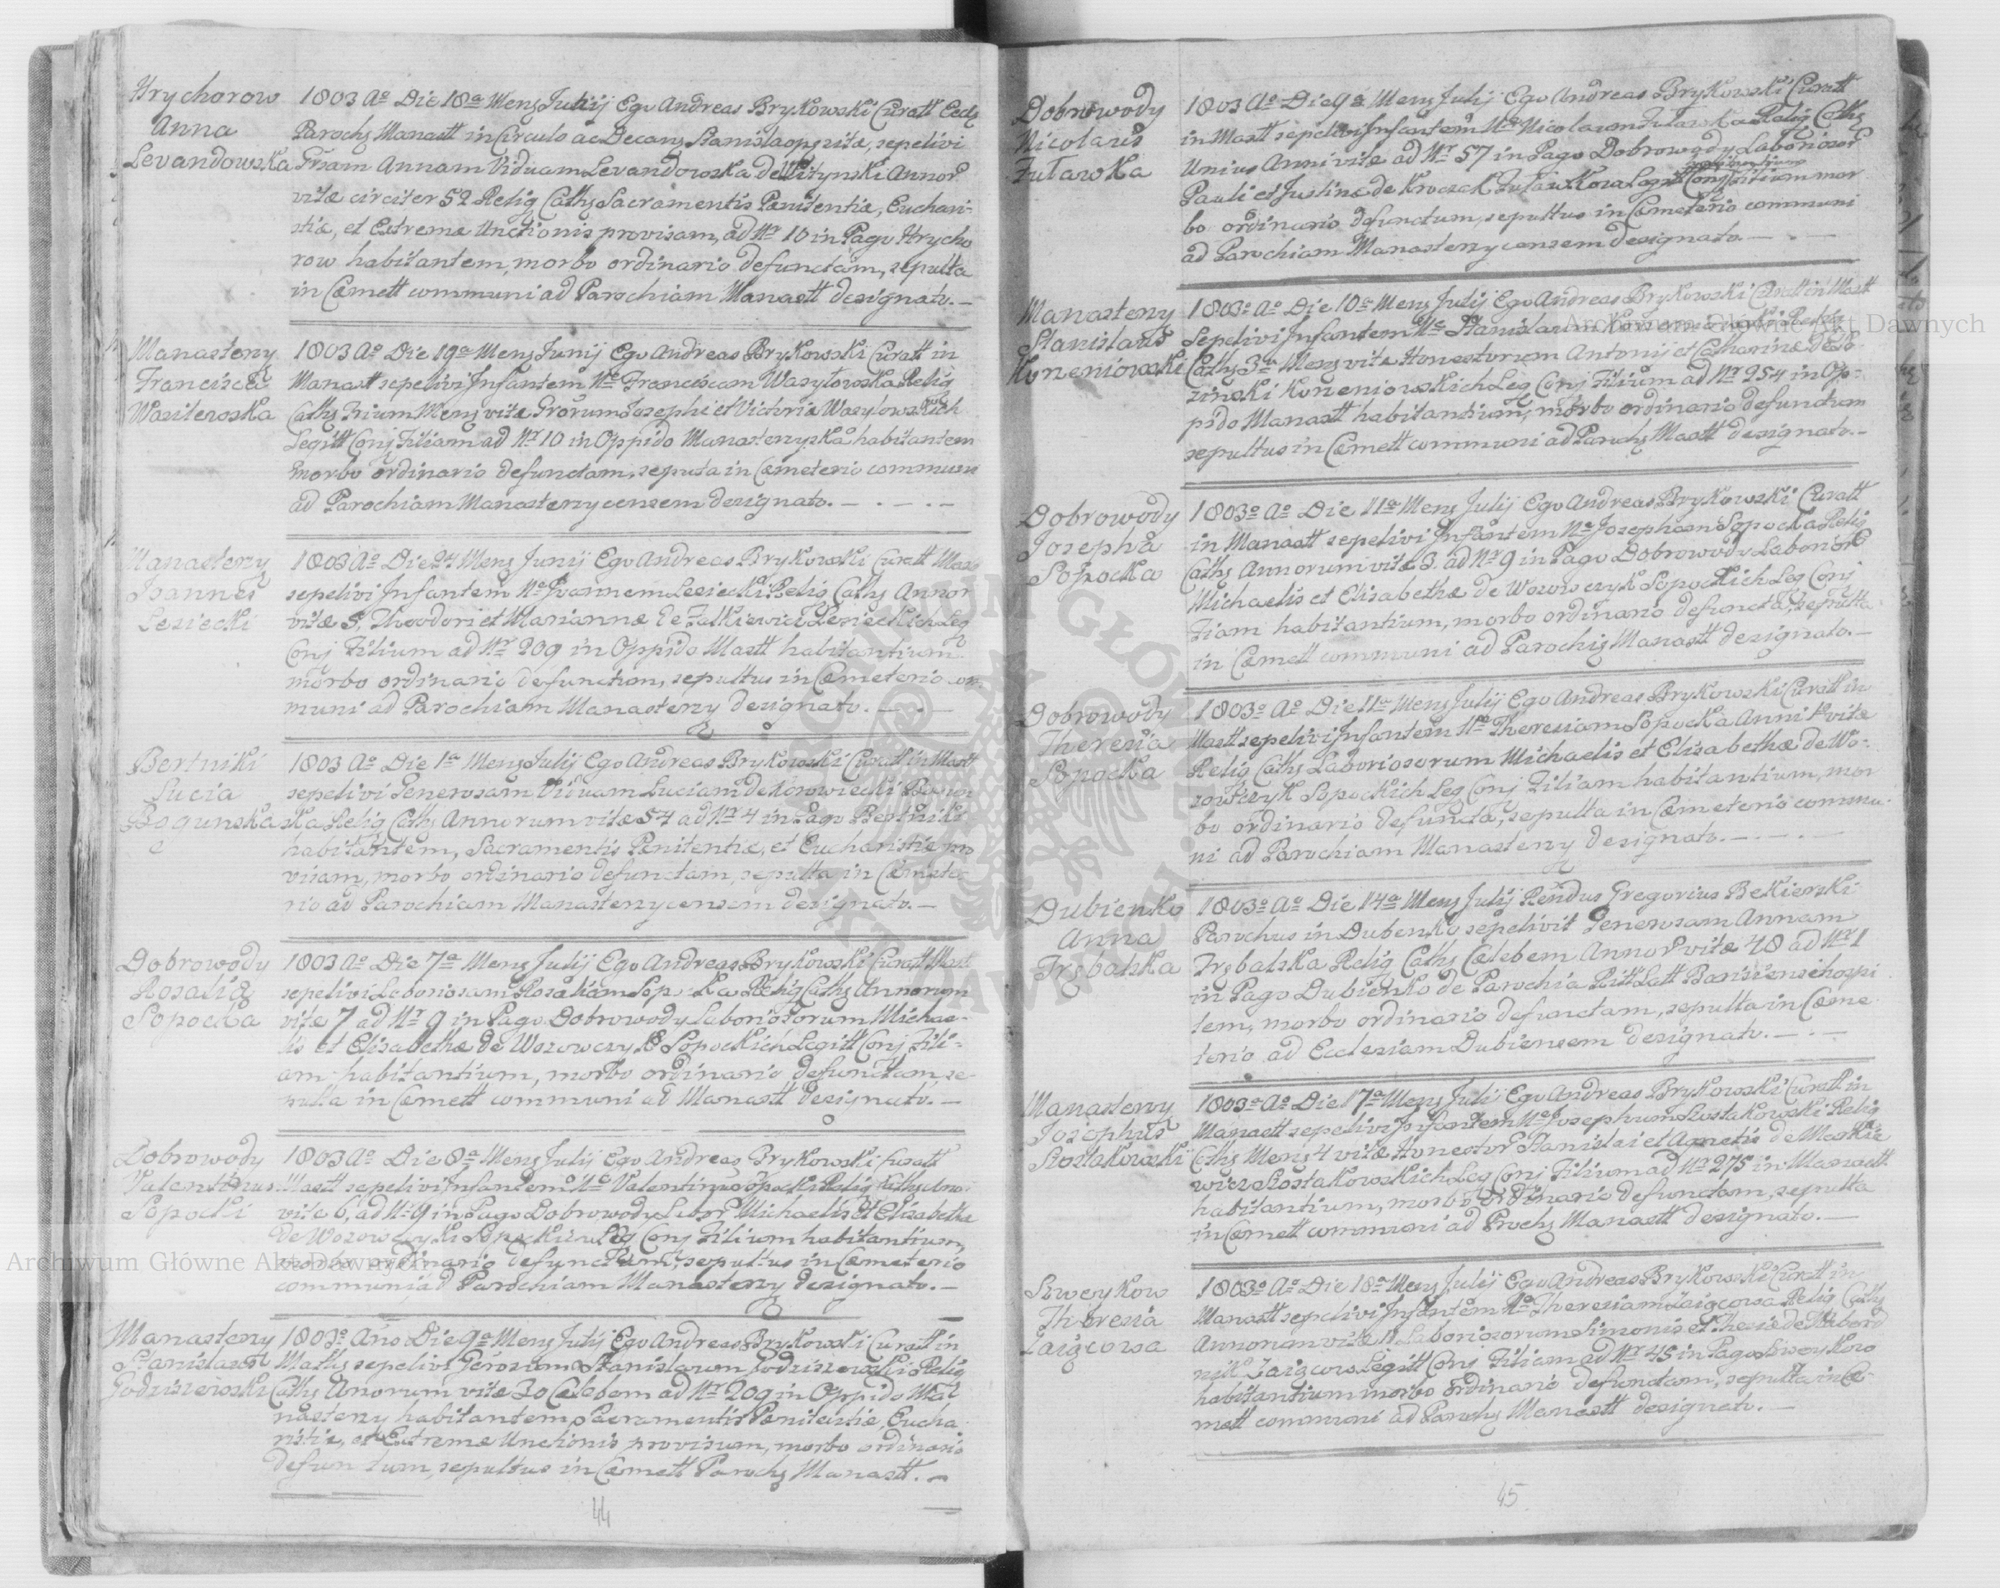 Hrychorow
Anna
Levandowska
1803 Aº Die 18a Mens Junij Ego Andreas Brykowski Curatt Eccls
Parochs Manastt in Circulo ac Decans Stanislaopsitæ, sepelivi
Grsam Annam Viduam Levandowska de Witynski Annor
vitæ circiter 52 Relig Caths Sacramentis Pænitentiæ, Euchari-
stiæ, et Extremæ Unctionis provisam, ad Nr 10 in Pago Hrycho
row habitantem, morbo ordinario defunctam, sepulta
in Cæmett communi ad Parochiam Manastt designato.—
Manasterzy
Francisca
Wasilewska
1803 Aº Die 19a Mens Junij Ego Andreas Brykowski Curatt in
Manastt sepelivi Infantem Ne Franciscam Wasylowska Relig
Caths Trium Mens vitæ Grorum Josephi et Victoriæ Wasylowskich
Legitt Conj Filiam ad Nr 10 in Oppido Manasterzyska habitantem
morbo ordinario defunctam, seputa in Cæmeterio commun
ad Parochiam Manasterzycensem designato. — . — . —
Manasterzy
Joannes
Lesiecki
1803 Aº Die 24 Mens Junij Ego Andreas Brykowski Curatt Mans
sepelivi Infantem Ne Joannem Lesiecki Relig Caths Annor
vitæ 5, Theodori et Mariannæ de Falkiewicz Lesieckich Leg
Conj Filium ad Nr 209 in Oppido Mastt habitantium
morbo ordinario defunctum, sepultus in Cæmeterio com
muni ad Parochiam Manasterzy designato. — . —
Bertniki
Lucia
Bogunska
1803 Aº Die 1a Mens Julij Ego Andreas Brykowski Curatt in Mastt
sepelivi Generosam Viduam Luciam de Korowiecki Bogun
ska Relig Caths Annorum vitæ 54 ad Nr 4 in Pago Bertniki
habitantem, Sacramentis Pænitentiæ, et Eucharistiæ pro
visam, morbo ordinario defunctam, sepulta in Cæmete-
rio ad Parochiam Manasterzycensem designato. —
Dobrowody
Rosalia
Sopocka
1803 Aº Die 7a Mens Julij Ego Andreas Brykowski Curatt Mast
sepelivi Laboriosam Rosaliam Sopocka Relig Caths Annorum
vitæ 7 ad Nr 9 in Pago Dobrowody Laboriosorum Michae-
lis et Elisabethæ de Wozowczyk Sopockich Legitt Conj Fili-
am habitantium, morbo ordinario defunctam, se-
pulta in Cæmett communi ad Manastt designato. —
Dobrowody
Valentinus
Sopocki
1803 Aº Die 8a Mens Julij Ego Andreas Brykowski Curatt
Mastt sepelivi Infantem Ne Valentinum Sopocki Relig Caths Ano
vitæ 6, ad Nr 9 in Pago Dobrowody Labor Michaelis et Elisabethæ
de Wozowczyk Sopockich Leg Conj Filium habitantium,
morbo ordinario defunctum, sepultus in Cæmeterio
communi ad Parochiam Manasterzy designato. —
Manasterzy
Stanislaus
Godziszewski
1803º Ano Die 9a Mens Julij Ego Andreas Brykowski Curatt in
Maths sepelivi Gerosum Stanislaum Godziszewski Relig
Caths Anorum vitæ 30 Celebem ad Nr 209 in Oppido Ma-
nasterzy habitantem Sacramentis Pænitentiæ, Eucha
ristiæ, et Extremæ Unctionis provisum, morbo ordinario
defunctum, sepultus in Cæmett Parochs Manastt. —
44
Dobrowody
Nicolaus
Futawka
1803 Aº Die 9a Mens Julij Ego Andreas Brykowski Curatt
in Mastt sepelivi Infantem Ne Nicolaum Futawka Relig Caths
Unius Anni vitæ ad Nr 57 in Pago Dobrowody Laborioser
Pauli et Justinæ de Kroczek Futawkow Legitt Conj Filium mor
bo ordinario defunctum, sepultus in Cæmeterio communi
ad Parochiam Manasterzycensem designato — . —
Manasterzy
Stanislaus
Korzeniowski
1803º Aº Die 10a Mens Julij Ego Andreas Brykowski Curatt in Mastt
Sepelivi Infantem Ne Stanislaum Korzeniowski Relig
Caths 3a Mens vitæ Honestorum Antonij et Catharinæ de
zinski Korzeniowskich Leg Conj Filium ad Nr 254 in Op-
pido Manastt habitantium, morbo ordinario defunctum
sepultus in Cæmett communi ad Parochs Mastt designato.—
Dobrowody
Josepha
Sopocka
1803º Aº Die 11a Mens Julij Ego Andreas Brykowski Curatt
in Manastt sepelivi Infantem Ne Josepham Sopocka Relig
Caths Annorum vitæ 3. ad Nr 9 in Pago Dobrowody Laborior
Michaelis et Elisabethæ de Wozowczyk Sopockich Leg Conj
Fiiam habitantium, morbo ordinario defunctæ, sepulta
in Cæmett communi ad Parochis Manastt designato.—
Dobrowody
Theresia
Sopocka
1803º Aº Die 11a Mens Julij Ego Andreas Brykowski Curatt in
Mastt sepelivi Infantem Ne Theresiam Sopocka Anni 1 vitæ
Relig Caths Laboriosorum Michaelis et Elisabethæ de Wo-
zowczyk Sopockich Leg Conj Filiam habitantium, mor
bo ordinario defuncta, sepulta in Cæmeterio commu-
ni ad Parochiam Manasterzy designato. — . — . —
Dubienko
Anna
Trębalska
1803º Aº Die 14a Mens Julij Rendus Gregorius Bekierski
Parochus in Dubenko sepelivit Generosam Annam
Trębalska Relig Caths Cælebem Annor vitæ 48 ad Nr 1
in Pago Dubienko de Parochia Ritt Latt Barisiensi hospi
tem, morbo ordinario defunctam, sepulta in Cæme
terio ad Ecclesiam Dubiensem designato. — . —
Manasterzy
Josephus
Szostakowski
1803º Aº Die 17a Mens Julij Ego Andreas Brykowski Curatt in
Manastt sepelivi Infantem Ne Josephum Szostakowski Relig
Caths Mens 4 vitæ Honestor Stanislai et Agnetis de Maskie
wicz Szostakowskich Leg Conj Filium ad Nr 275 in Manastt
habitantium, morbo ordinario defunctam, sepulta
in Cæmett communi ad Prochs Manastt designato. —
Szweykow
Theresia
Zaigcowa
1803º Aº Die 18a Mens Julij Ego Andreas Brykowski Curatt in
Manastt sepelivi Infantem Ne Theresiam Zaigcowa Relig Caths
Annorum vitæ Laboriosorum Simonis et
Zaigcow Legitt Conj Filiam ad Nr 45 in Pago Szweykow
habitantium morbo ordinario defunctam, sepulta in Cæ-
mett communi ad Parochs Manastt designato. —
45
Archiwum Główne Akt Dawnych
Archiwum Główne Akt Dawnych
ARCHIWUM GŁÓWNE AKT DAWNYCH